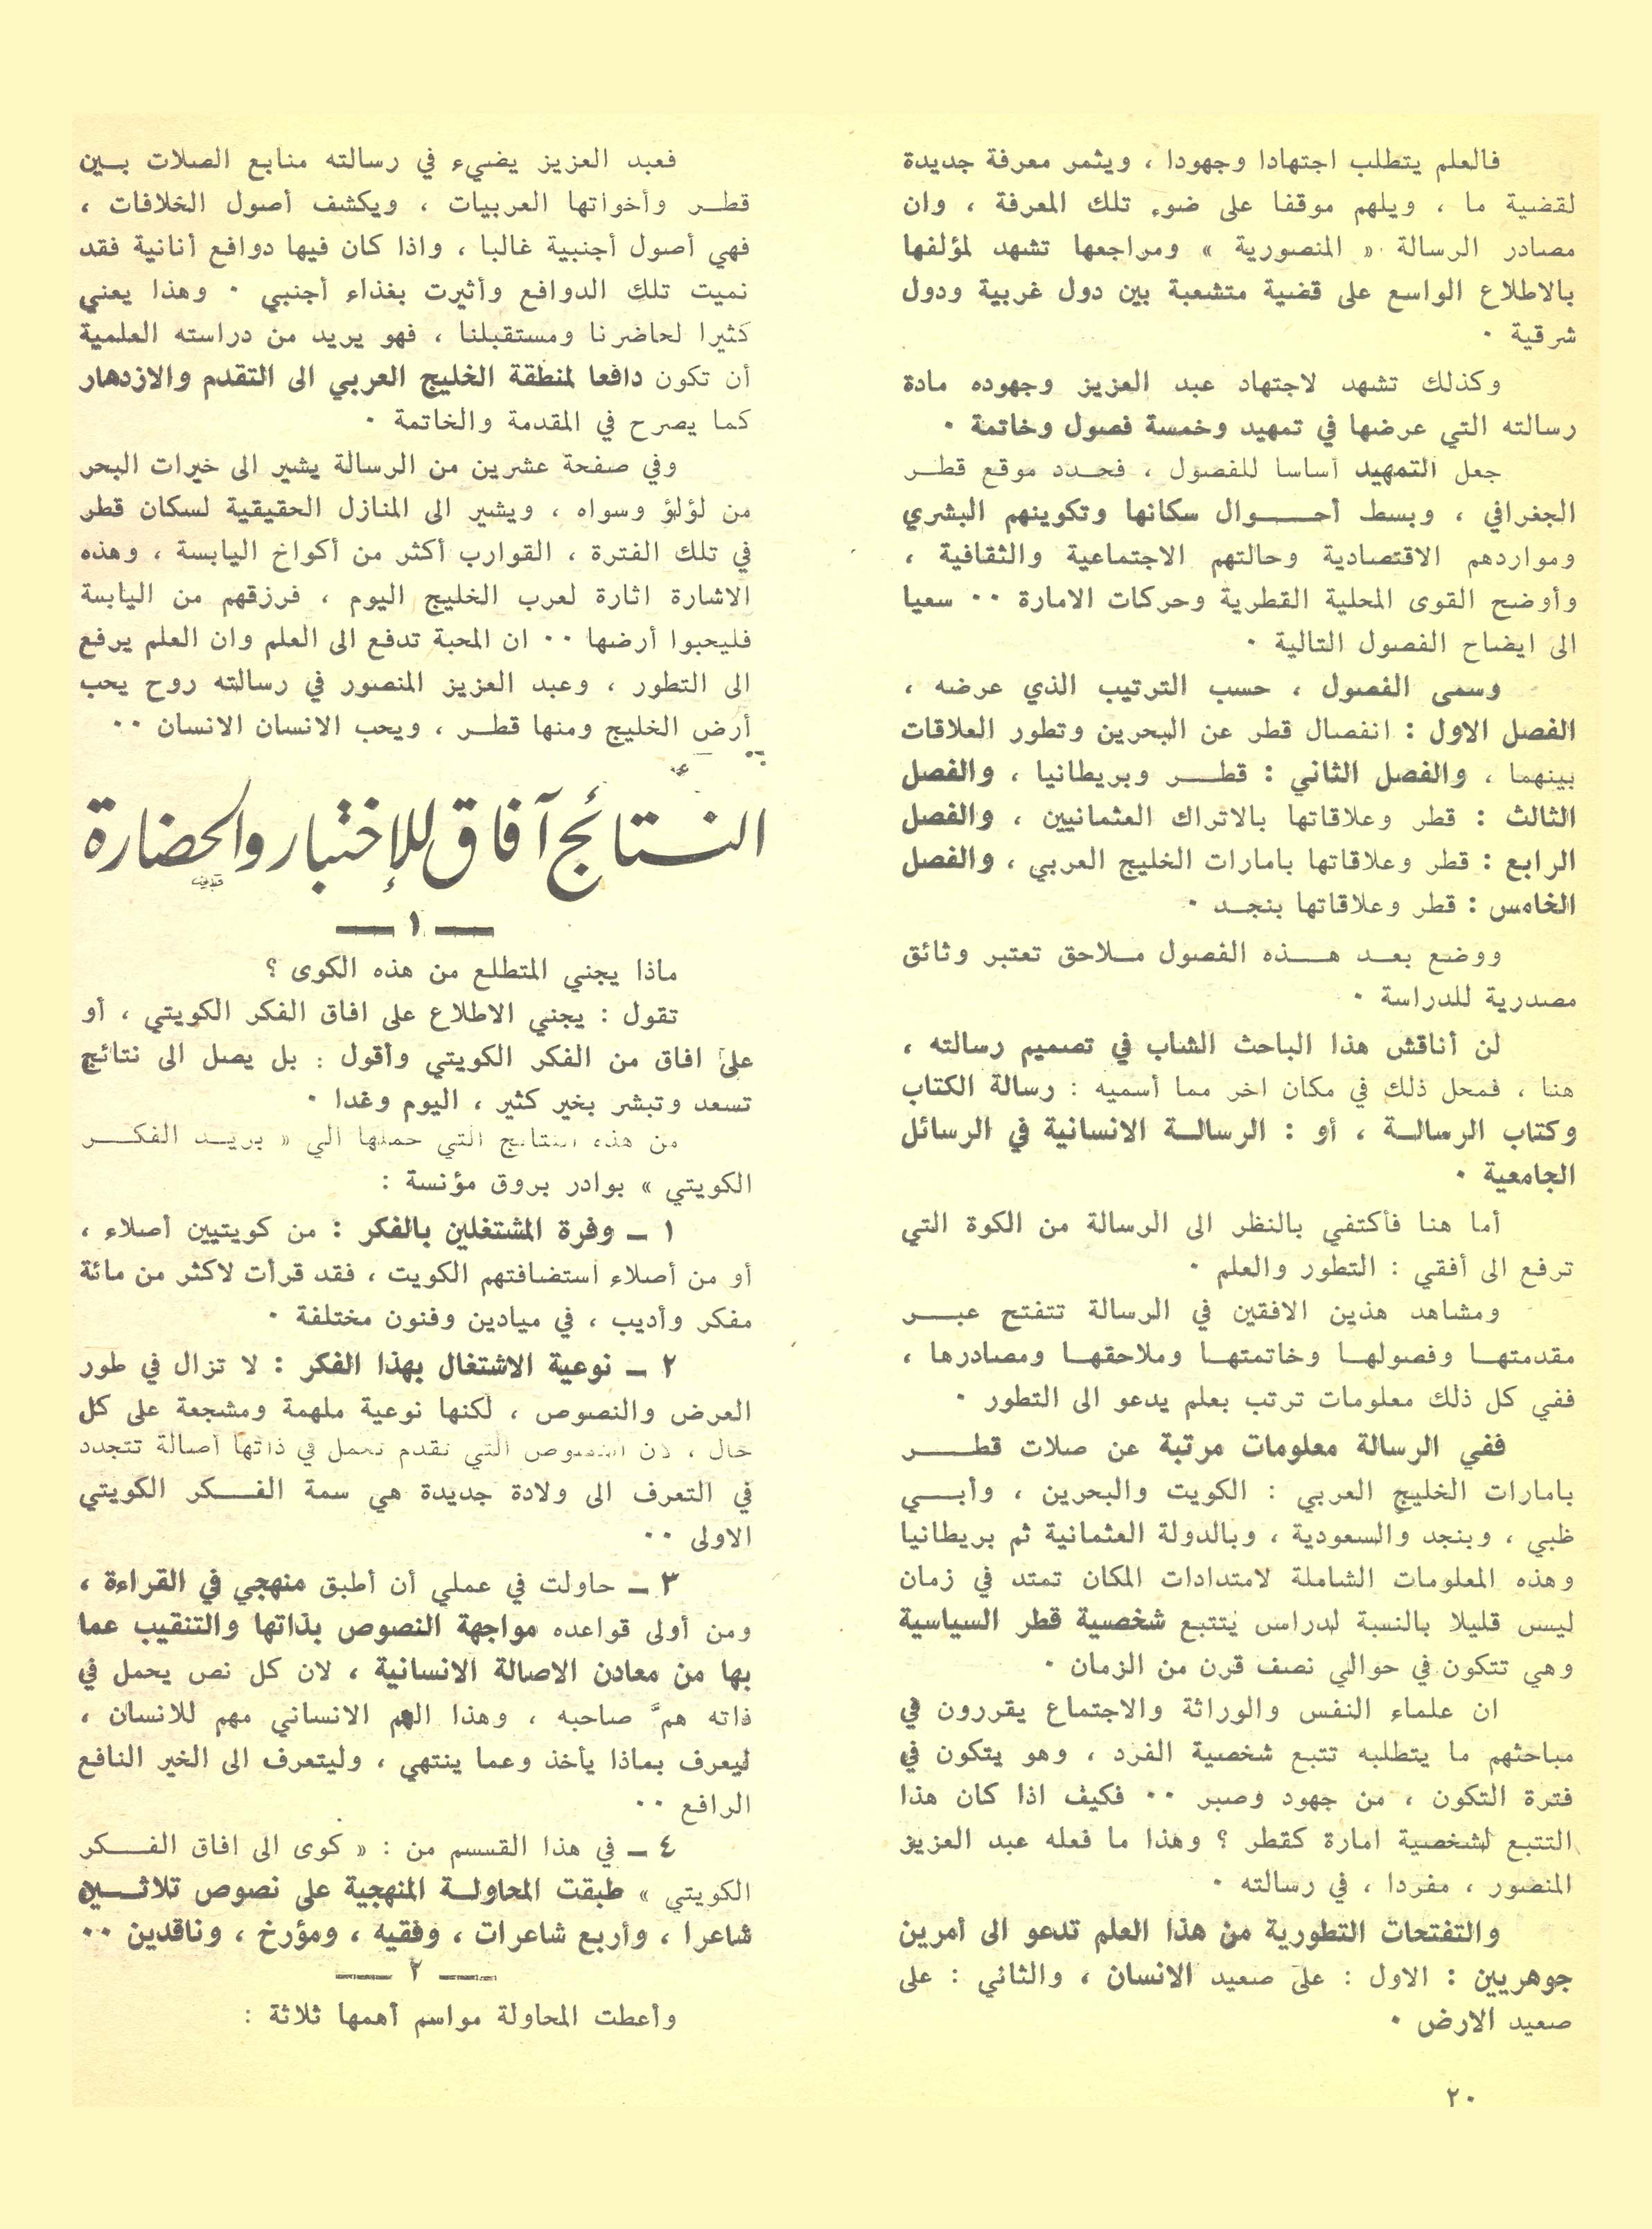 فالعلم يتطلب اجتهادا وجهودا ، ويثمر معرفة جديدة
لقضية ما ، ويلهم موقفا على ضوء تلك المعرفة ، وان
مصادر الرسالة « المنصورية » ومراجعها تشهد لمؤلفها
بالاطلاع الواسع على قضية متشعبة بين دول غربية ودول
شرقية ٠
وكذلك تشهد لاجتهاد عبد العزيز وجهوده مادة
رسالته التي عرضها في تمهيد وخمسة فصول وخاتمة ٠
جعل التمهيد أساسا للفصول ، فحدد موقع قطر
الجغرافي ، وبسط أحوال سكانها وتكوينهم البشري
ومواردهم الاقتصادية وحالتهم الاجتماعية والثقافية ،
وأوضح القوى المحلية القطرية وحركات الامارة ٠٠ سعيا
الى ايضاح الفصول التالية ٠
وسمى الفصول ، حسب الترتيب الذي عرضه ،
الفصل الاول : انفصال قطر عن البحرين وتطور العلاقات
بينهما ، والفصل الثاني : قطر وبريطانيا ، والفصل
الثالث : قطر وعلاقاتها بالاتراك العثمانيين ، والفصل
الرابع : قطر وعلاقاتها بامارات الخليج العربي ، والفصل
الخامس : قطر وعلاقاتها بنجد ٠
ووضع بعد هذه الفصول ملاحق تعتبر وثائق
مصدرية للدراسة ٠
لن أناقش هذا الباحث الشاب في تصميم رسالته ،
هنا ، فمحل ذلك في مكان اخر مما أسميه : رسالة الكتاب
وكتاب الرسالة ، أو : الرسالة الانسانية في الرسائل
الجامعية ٠
أما هنا فأكتفي بالنظر الى الرسالة من الكوة التي
ترفع الى أفقي : التطور والعلم ٠
ومشاهد هذين الافقين في الرسالة تتفتح عبر
مقدمتها وفصولها وخاتمتها وملاحقها ومصادرها ،
ففي كل ذلك معلومات ترتب بعلم يدعو الى التطور ٠
ففي الرسالة معلومات مرتبة عن صلات قطر
بامارات الخليج العربي : الكويت والبحرين ، وأبي
ظبي ، وبنجد والسعودية ، وبالدولة العثمانية ثم بريطانيا
وهذه المعلومات الشاملة لامتدادات المكان تمتد في زمان
ليس قليلا بالنسبة لدراس يتتبع شخصية قطر السياسية
وهي تتكون في حوالي نصف قرن من الزمان ٠
ان علماء النفس والوراثة والاجتماع يقررون في
مباحثهم ما يتطلبه تتبع شخصية الفرد ، وهو يتكون في
فترة التكون ، من جهود وصبر ٠٠ فكيف اذا كان هذا
التتبع لشخصية امارة كقطر ؟ وهذا ما فعله عبد العزيز
المنصور ، مفردا ، في رسالته ٠
والتفتحات التطورية من هذا العلم تدعو الى أمرين
جوهريين : الاول : على صعيد الانسان ، والثاني : على
صعيد الارض ٠
٢٠
فعبد العزيز يضيء في رسالته منابع الصلات بين
قطر وأخواتها العربيات ، ويكشف أصول الخلافات ،
فهي أصول أجنبية غالبا ، واذا كان فيها دوافع أنانية فقد
نميت تلك الدوافع وأثيرت بغذاء أجنبي ٠ وهذا يعني
كثيرا لحاضرنا ومستقبلنا ، فهو يريد من دراسته العلمية
أن تكون دافعا لمنطقة الخليج العربي الى التقدم والازدهار
كما يصرح في المقدمة والخاتمة ٠
وفي صفحة عشرين من الرسالة يشير الى خيرات البحر
من لؤلؤ وسواه ، ويشير الى المنازل الحقيقية لسكان قطر
في تلك الفترة ، القوارب أكثر من أكواخ اليابسة ، وهذه
الاشارة اثارة لعرب الخليج اليوم ، فرزقهم من اليابسة
فليحبوا أرضها ٠٠ ان المحبة تدفع الى العلم وان العلم يرفع
الى التطور ، وعبد العزيز المنصور في رسالته روح يحب
أرض الخليج ومنها قطر ، ويحب الانسان الانسان ٠٠
النتائج آفاق للإختبار والحضارة
— ١ —
ماذا يجني المتطلع من هذه الكوى ؟
تقول : يجني الاطلاع على افاق الفكر الكويتي ، أو
على افاق من الفكر الكويتي وأقول : بل يصل الى نتائج
تسعد وتبشر بخير كثير ، اليوم وغدا ٠
من هذه النتائج التي حملها الي « بريد الفكر
الكويتي » بوادر بروق مؤنسة :
١ – وفرة المشتغلين بالفكر : من كويتيين أصلاء ،
أو من أصلاء استضافتهم الكويت ، فقد قرأت لاكثر من مائة
مفكر وأديب ، في ميادين وفنون مختلفة ٠
٢ – نوعية الاشتغال بهذا الفكر : لا تزال في طور
العرض والنصوص ، لكنها نوعية ملهمة ومشجعة على كل
حال ، لان النصوص التي تقدم تحمل في ذاتها أصالة تتجدد
في التعرف الى ولادة جديدة هي سمة الفكر الكويتي
الاولى ٠٠
٣ – حاولت في عملي أن أطبق منهجي في القراءة ،
ومن أولى قواعده مواجهة النصوص بذاتها والتنقيب عما
بها من معادن الاصالة الانسانية ، لان كل نص يحمل في
ذاته همَّ صاحبه ، وهذا الهم الانساني مهم للانسان ،
ليعرف بماذا يأخذ وعما ينتهي ، وليتعرف الى الخير النافع
الرافع ٠٠
٤ – في هذا القسم من : « كوى الى افاق الفكر
الكويتي » طبقت المحاولة المنهجية على نصوص ثلاثين
شاعرا ، وأربع شاعرات ، وفقيه ، ومؤرخ ، وناقدين ٠٠
— ٢ —
وأعطت المحاولة مواسم أهمها ثلاثة :